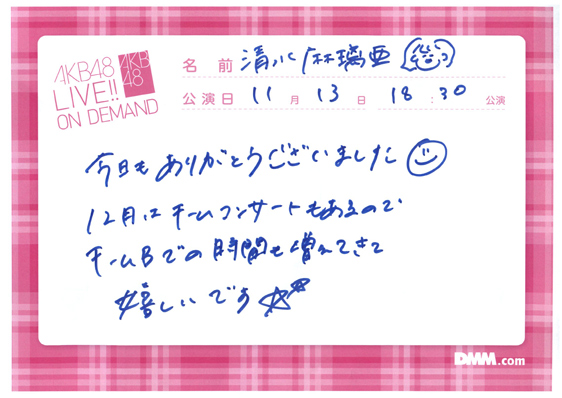 AKB48
LIVE!!
ON DEMAND
AKB
48
名前 清水麻璃亜
公演日 11月 13日 18:30 公演
今日もありがとうございました
12月はチームコンサートもあるので
チームBでの時間も増えてきて
嬉しいです
DMM.com